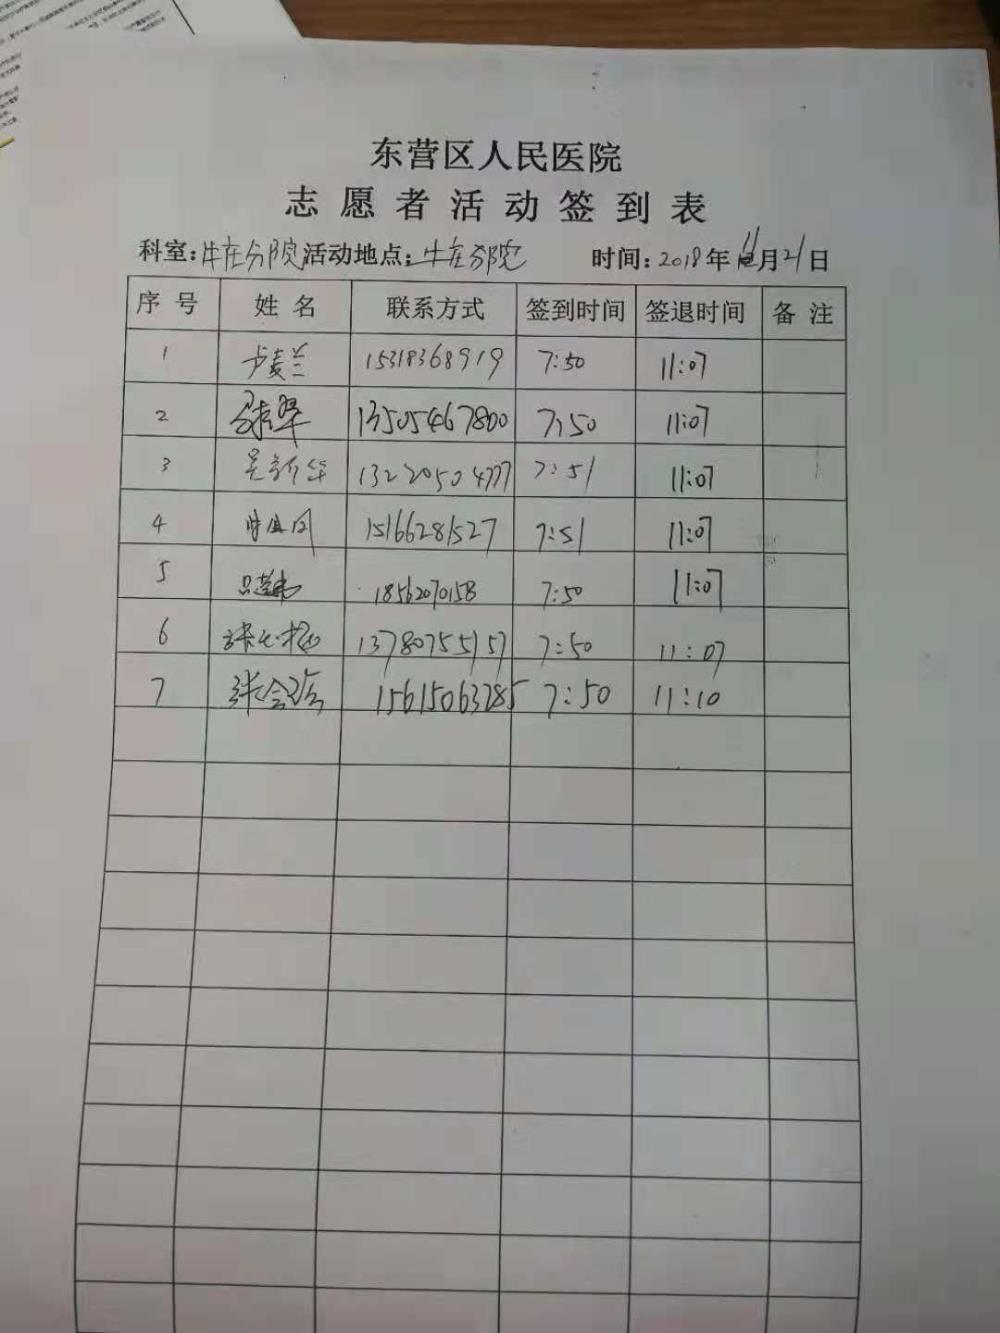 东营区人民医院
志愿者活动签到表
科室:牛庄分院 活动地点:牛庄分院 时间:2018年11月21日
序号 姓名 联系方式 签到时间 签退时间 备注
1 卢麦兰 15318368919 7:50 11:07
2 13505467800 7:50 11:07
3 吴新华 13220504777 7:51 11:07
4 15166281527 7:51 11:07
5 7:50 11:07
6 13780755157 7:50 11:07
7 15615063785 7:50 11:10